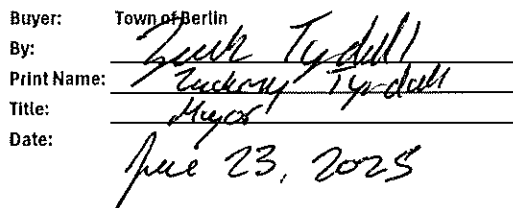 Buyer: Town of Berlin
By: Zack Tyndall
Print Name: Zackary Tyndall
Title: Mayor
Date: June 23, 2025